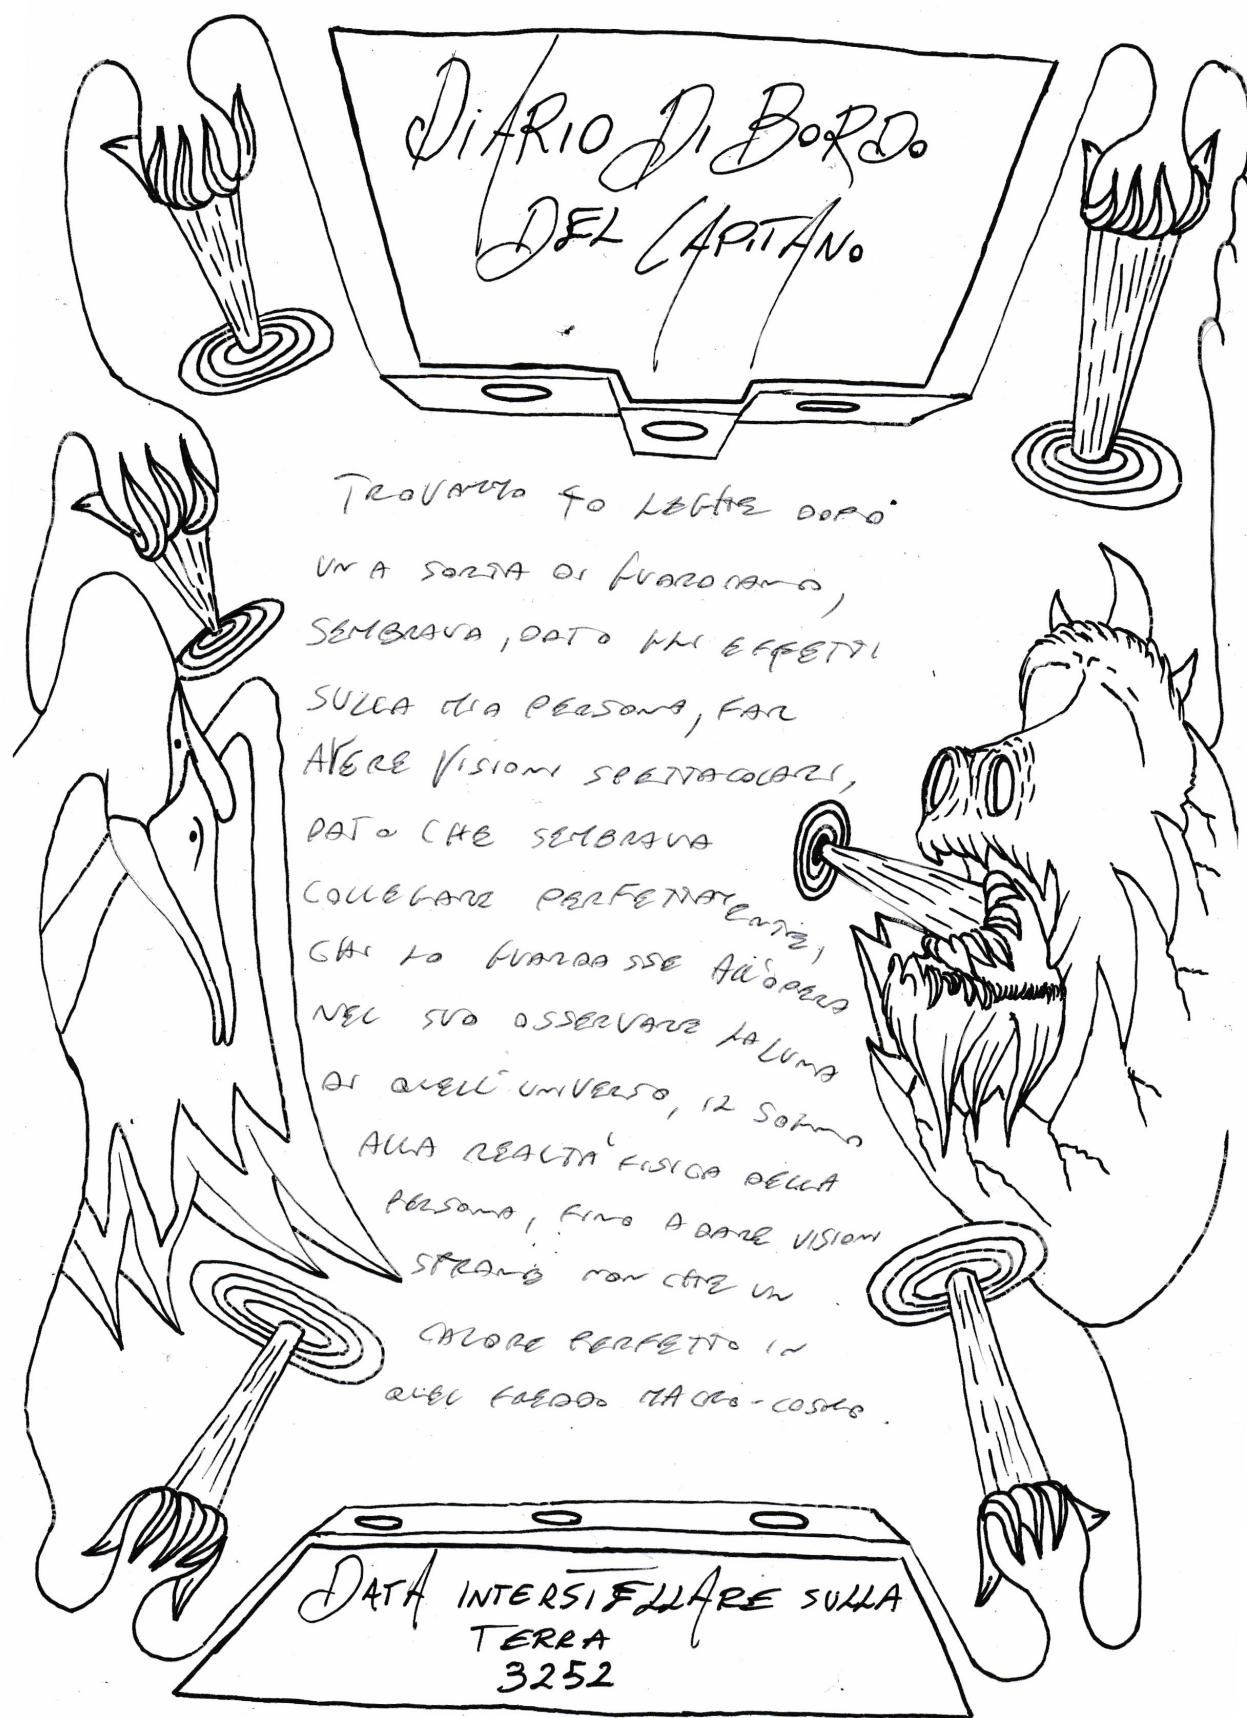 DIARIO DI BORDO
DEL CAPITANO
TROVAMMO 40 LEGHE DOPO
UNA SORTA DI GUARDIANO,
SEMBRAVA, DATO GLI EFFETTI
SULLA MIA PERSONA, FAR
AVERE VISIONI SPETTACOLARI,
DATO CHE SEMBRAVA
COLLEGARE PERFETTAMENTE,
CHI LO GUARDASSE ALL'OPERA
NEL SUO OSSERVARE LA LUNA
DI QUELL'UNIVERSO, IL SONNO
ALLA REALTÀ FISICA DELLA
PERSONA, FINO A DARE VISIONI
STRANE NON CHE UN
CALORE PERFETTO IN
QUEL FREDDO MACRO-COSMO.
DATA INTERSTELLARE SULLA
TERRA
3252